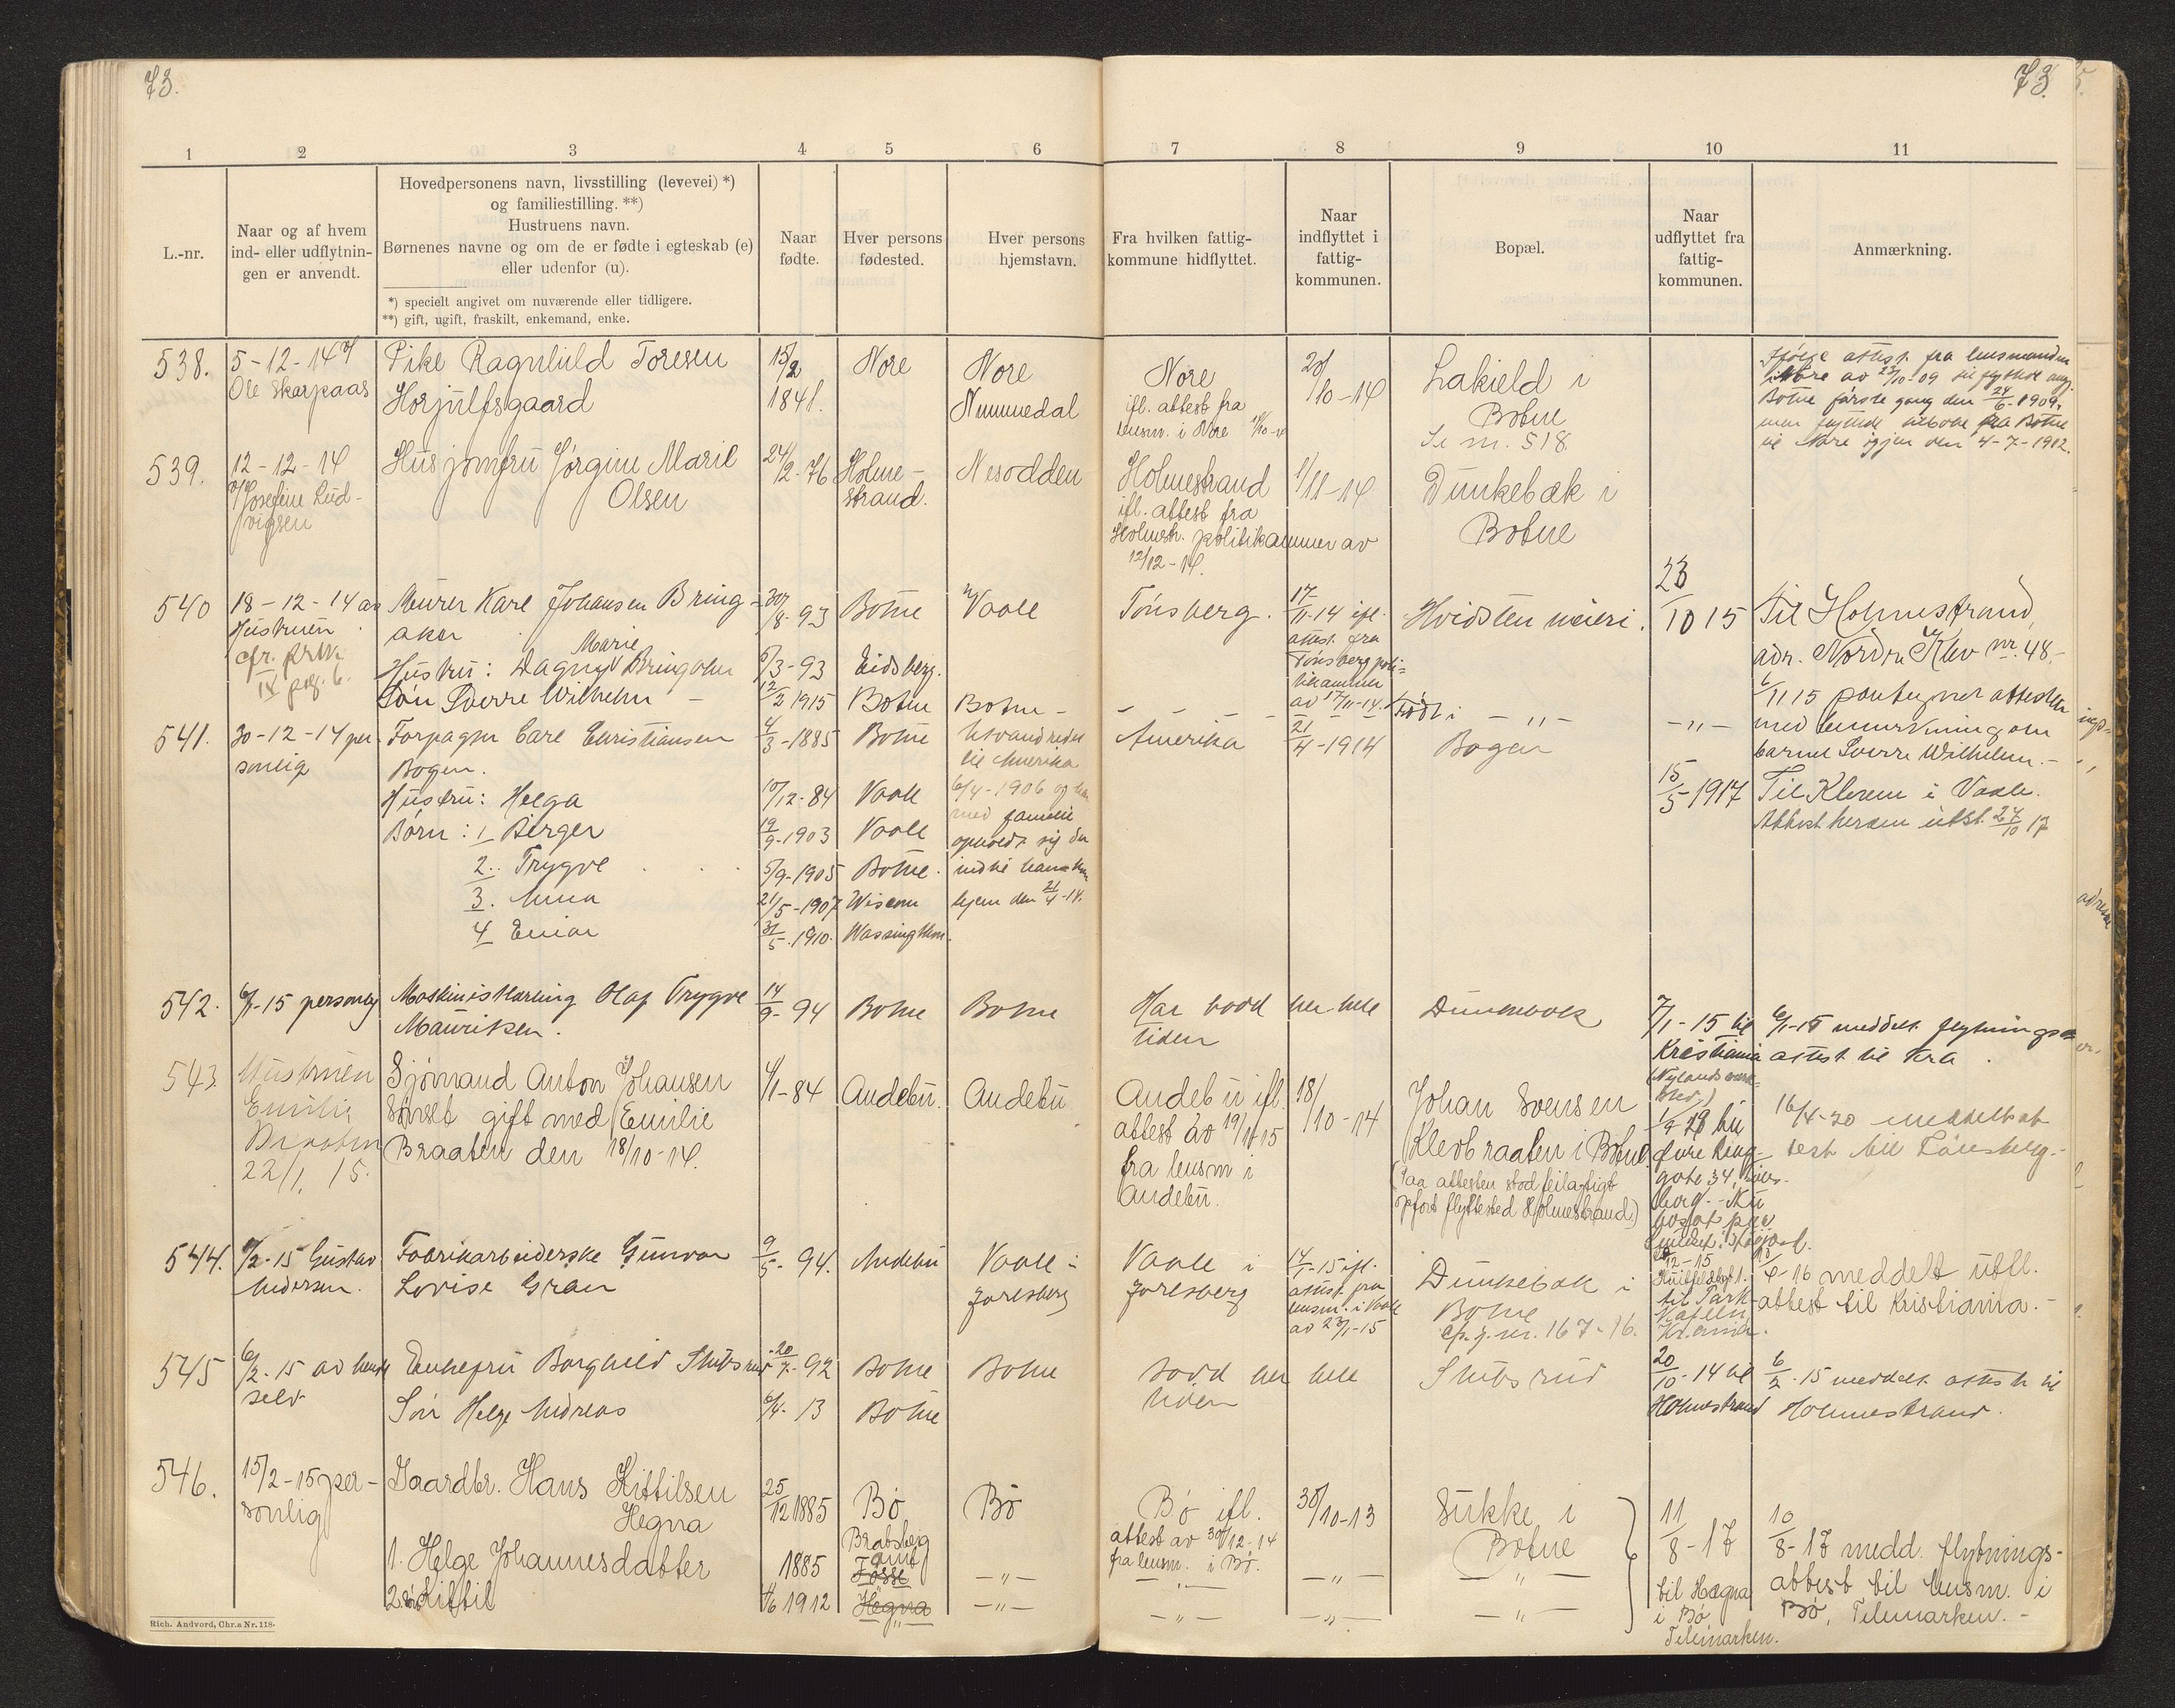 73.
73.
1 2 3 4 5 6 7 8 9 10 11
L.-nr.
Naar og af hvem
ind- eller udflytnin-
gen er anvendt.
Hovedpersonens navn, livsstilling (levevei) *)
og familiestilling. **)
Hustruens navn.
Børnenes navne og om de er fødte i egteskab (e)
eller udenfor (u).
*) specielt angivet om nuværende eller tidligere.
**) gift, ugift, fraskilt, enkemand, enke.
Naar
fødte.
Hver persons
fødested.
Hver persons
hjemstavn.
Fra hvilken fattig-
kommune hidflyttet.
Naar
indflyttet i
fattig-
kommunen.
Bopæl.
Naar
udflyttet fra
fattig-
kommunen.
Anmærkning.
538.
5-12-14 af
Ole Skarpaas
Pike Ragnhild Toresen
Horjulfsgaard
15/2
1841.
Nore
Nore
Nummedal
Nore
ifl. attest fra
lensm. i Nore
20/10-14
Lakield i
Botne
Se nr. 518.
Ifølge attest fra lensmanden
i Nore av 23/10-09 til Botne første gang den 24/6-1909,
fra Botne
til Nore igjen den 4-7-1912.
539.
12-12-14
af Josefine Lud-
vigsen
Husjomfru Jørgine Marie
Olsen
24/2-76
Holme-
strand.
Nesodden
Holmestrand
ifl. attest fra
Holmestr. politikammer av
12/12-14.
1/11-14
Dunkebæk i
Botne
540
18-12-14 av
Hustruen
cfr. prtk.
IX pag. 6.
Murer Karl Johansen Bring-
aker
Hustru: Dagny Marie Bringaker
Søn Sverre Wilhelm -
30/8-93
5/3-93
12/2 1915
Botne
Eidsberg.
Botne
Vaale
Botne -
Tønsberg.
17/11-14 ifl.
attest fra
Tønsberg poli-
tikammer
av 17/11-14.
Hvidsten meieri.
Født i - „ -
23/10 15
- „ -
Til Holmestrand,
adr. Nordre Klev nr. 48.-
6/11 15 paategnet attesten
med bemerkning om
barnet Sverre Wilhelm.-
541.
30-12-14 per-
sonlig
Forpagter Carl Christiansen
Bogen.
Hustru: Helga
Børn: 1 Birger
2. Trygve
3. Anna
4 Einar
4/3-1885
10/12-84
19/9-1903
5/9-1905
21/5-1907
31/5.1910.
Botne
Vaale
Vaale
Botne.
Wiscom
Wassingthon.
Utvandredet
til Amerika
6/4-1906 og har
med familie
opholdt sig der
indtil han kom
hjem den 21/4-14.
Amerika
21/4-1914
Bogen
15/5-1917
Til Klevem i Vaale.
Attest herom utst. 27/10 17
542.
6/1-15 personlig
Maskinistlærling Olaf Trygve
Mauritsen.
14/9-94
Botne
Botne
Har bodd her hele
tiden
Dunkebæk
7/1-15 til
Kristiania
(Nylands verk-
sted)
6/1-15 meddelt flytnings-
attest til Kra.
543
Hustruen
Emilie
Braaten
22/1. 15.
Sjømand Anton Johansen
gift med Emilie
Braaten den 18/10-14.
4/1-84
Andebu.
Andebu
Andebu ifl.
attest av 19/1 15
fra lensm i
Andebu.
18/10-14
Johan Svensen
Klevbraaten i Botne.
(Paa attesten stod feilagtigt
opført flyttested Holmestrand)
16/4-20 meddelt at-
test til Tønsberg.-
544.
/2-15 Gustav
Andersen.
Fabrikarbeiderske Gunvor
Lovise Gran
9/5-94.
Andebu
Vaale -
Jarlsberg
Vaale i
Jarlsberg
14/1-15 ifl.
attest fra
lensm. i Vaale
av 23/1-15
Dunkebæk i
Botne
cp. j.nr. 167-16.
til Park-
Kr.ania.
meddelt utfl.
attest til Kristiania.-
545
6/2-15 av hende
selv
Enkefru Borghild Stubsrud
Søn Helge Andreas
20/7-92
6/4-13
Botne
Botne
Botne
Bodd her hele
tiden
Stubsrud
20/10-14 til
Holmestrand
6/2-15 meddelt attest til
Holmestrand.
546.
15/2-15 per-
sonlig
Gaardbr. Hans Kittilsen
Hegna
1. Helge Johannesdatter
2. søn Kittil
25/12 1885
1885
4/6 1912
Bø
Bratsberg
amt
Fosse
Hegna
„
Bø
- „ -
- „ -
Bø ifl.
attest av 30/12-14
fra lensm. i Bø.
- „ -
- „ -
30/10-13
- „ -
- „ -
Sukke i
Botne
- „ -
- „ -
11/8-17
til Hægna
i Bø
Telemarken.
10/8-17 medd. flytnings-
attest til lensm. i
Bø, Telemarken.-
Rich. Andvord, Chr.a Nr. 118.